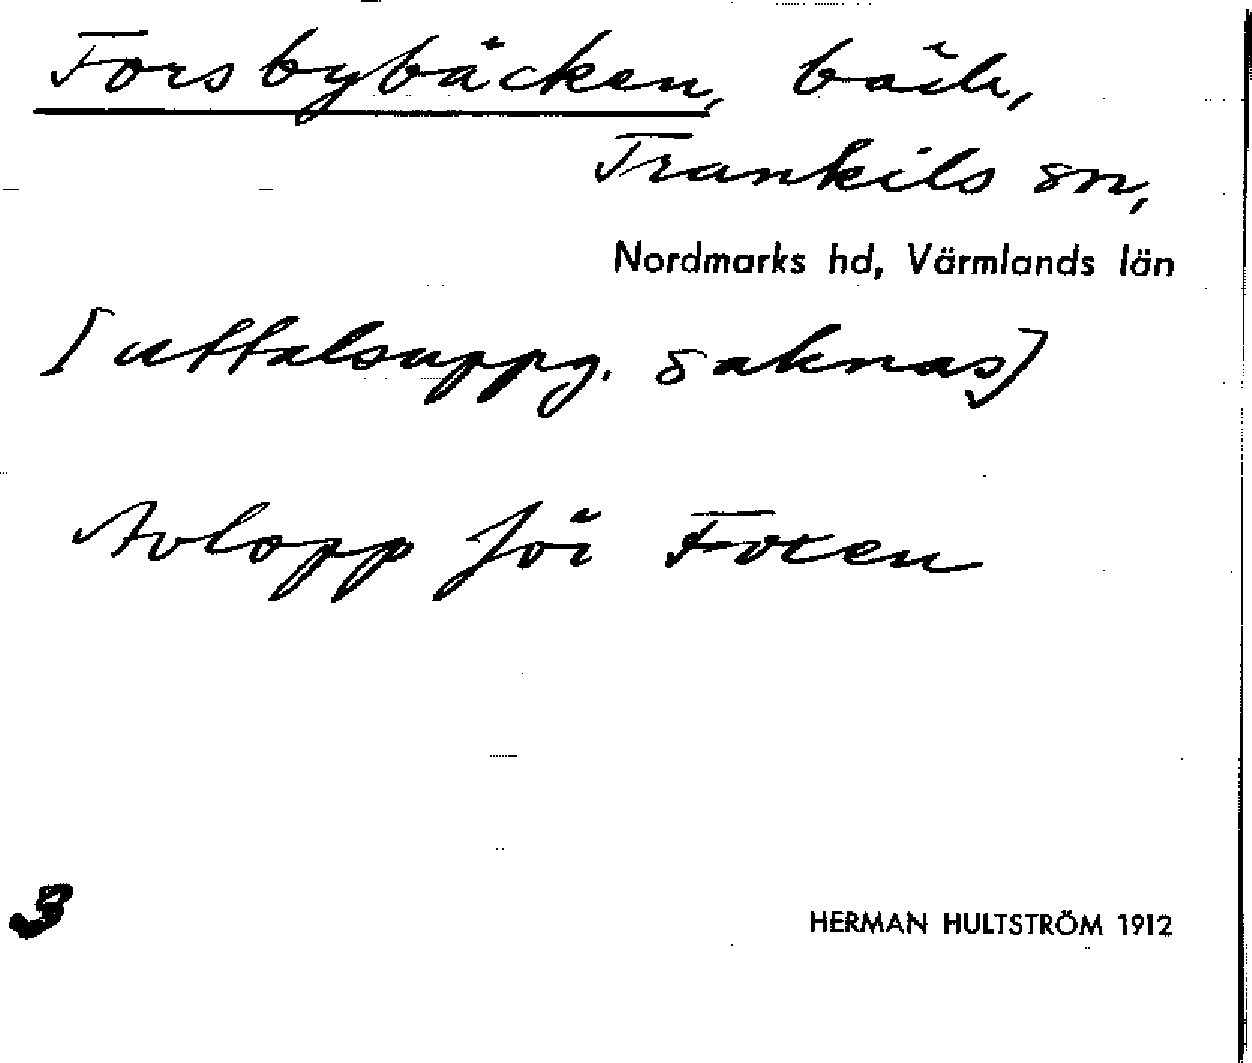 Forsbybäcken, bäck,
Trankils sn,
Nordmarks hd, Värmlands län
[uttalsuppg. saknas]
Avlopp för Foxen
3
HERMAN HULTSTRÖM 1912